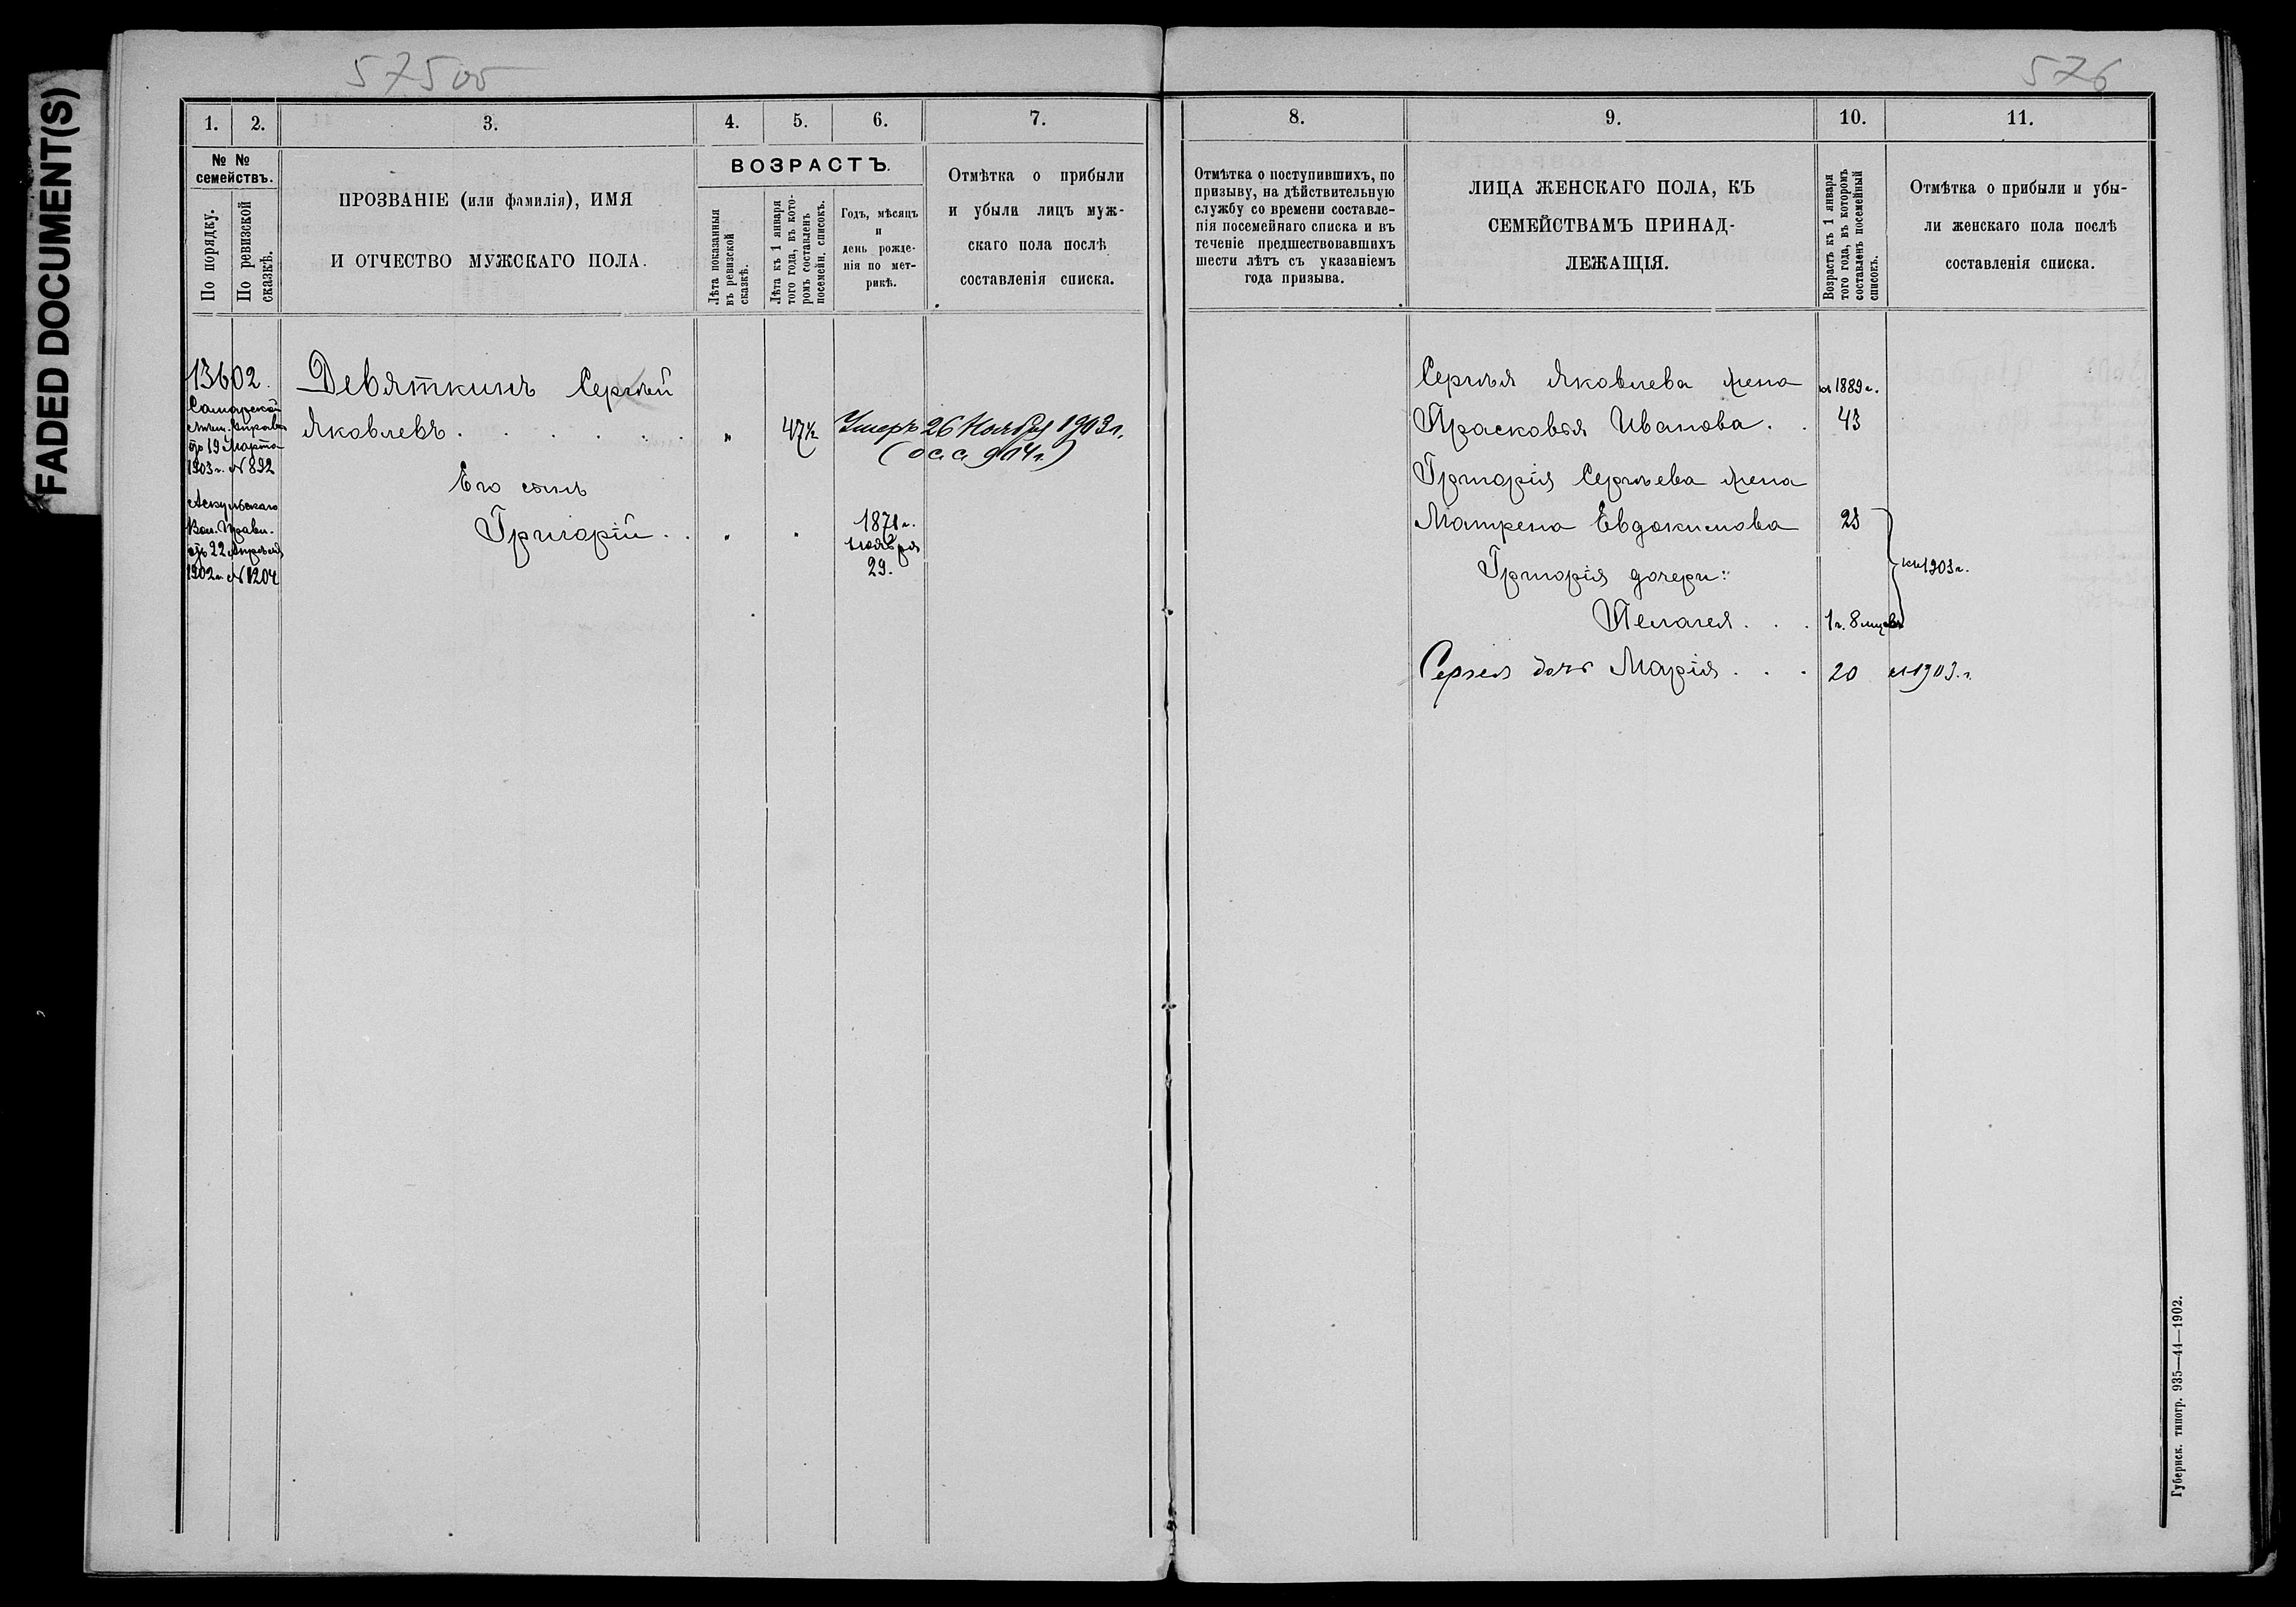 FADED DOCUMENT(S)
575 об
576
1. 2. 3. 4. 5. 6. 7.
№ №
семействъ.
По порядку.
По ревизской
сказкѣ.
ПРОЗВАНІЕ (или фамилія), ИМЯ
И ОТЧЕСТВО МУЖСКАГО ПОЛА.
ВОЗРАСТЪ.
Лѣта показанныя
въ ревизской
сказкѣ.
Лѣта къ 1 января
того года, въ кото-
ромъ составленъ
посемейн. списокъ.
Годъ, мѣсяцъ
и
день рожде-
нія по мет-
рикѣ.
Отмѣтка о прибыли
и убыли лицъ муж-
скаго пола послѣ
составленія списка.
13602.
Самарской
Мѣщ. Управы
отъ 19 Марта
1903 г. № 892
Аскульскаго
Вол. Правл.
отъ 22 Апрѣля
1902 г. № 1204
Девяткинъ Сергѣй
Яковлевъ . . . . . . „ 47½ Умеръ 26 Ноября 1903 г.
Его сынъ
Григорій . . „ „
ноября
29.
8. 9. 10. 11.
Отмѣтка о поступившихъ, по
призыву, на дѣйствительную
службу со времени составле-
нія посемейнаго списка и въ
теченіе предшествовавшихъ
шести лѣтъ съ указаніемъ
года призыва.
ЛИЦА ЖЕНСКАГО ПОЛА, КЪ
СЕМЕЙСТВАМЪ ПРИНАД-
ЛЕЖАЩІЯ.
Возрастъ къ 1 января
того года, въ которомъ
составленъ посемейный
списокъ.
Отмѣтка о прибыли и убы-
ли женскаго пола послѣ
составленія списка.
Сергѣя Яковлева жена къ 1889 г.
Прасковья Иванова . . 43
Григорія Сергѣева жена
Матрена Евдокимова 23
Григорія дочери: къ 1903 г.
Пелагея . . . 1 г. 8 мцевъ
Сергея дочь Марія . . . 20 къ 1903. г.
Губернск. типогр. 935—44—1902.